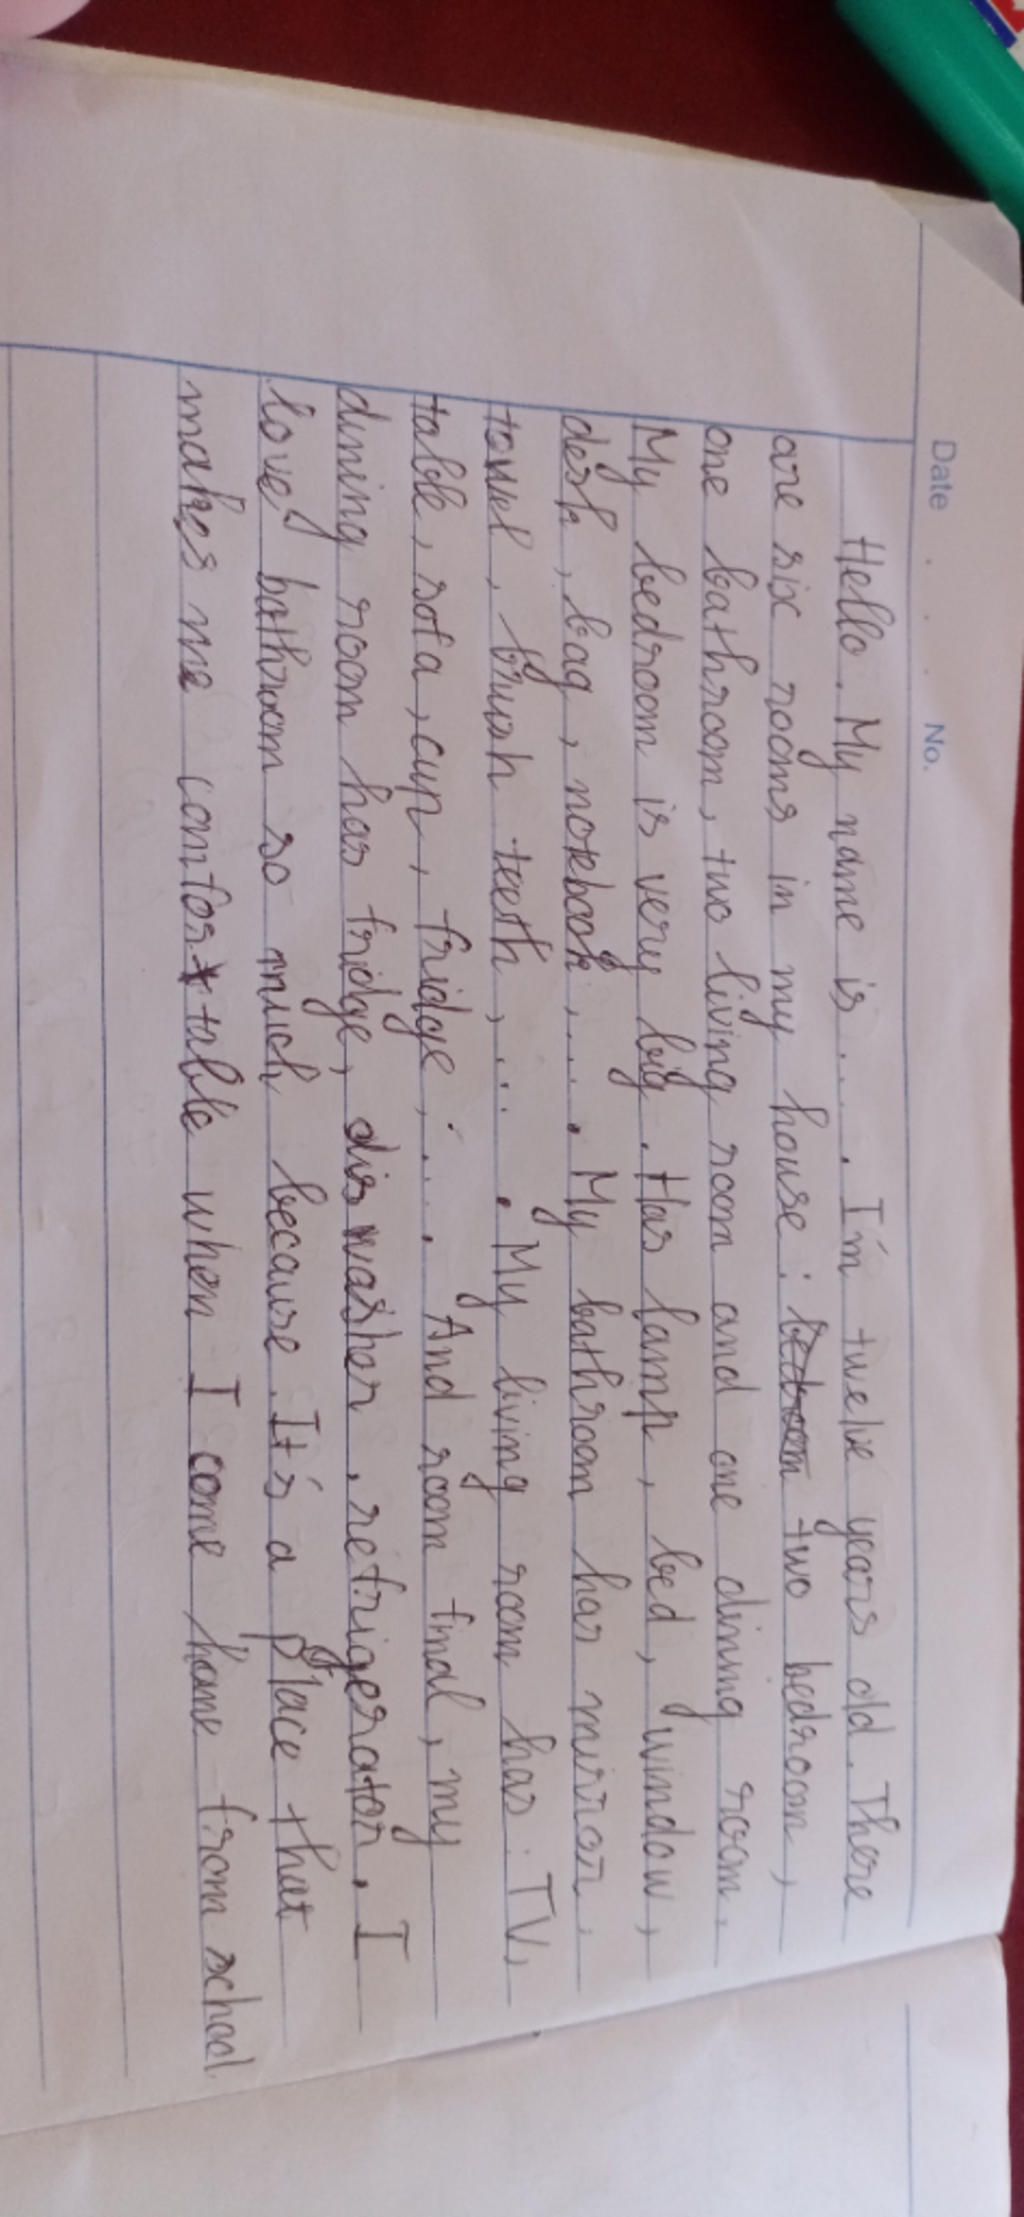 Date . . . No.
Hello. My name is..... I'm twelve years old. There
are six rooms in my house : bedroom two bedroom,
one bathroom, two living room and one dining room.
My bedroom is very big. Has lamp, bed, window,
desk, bag, notebook,..... My bathroom has mirror,
towel, brush teeth, .... . My living room has : TV,
table, sofa, cup, fridge,..... And room final, my
dining room has fridge, diswasher, refrigerator. I
love bathroom so much because. It's a place that
makes me comfortable when I come home from school